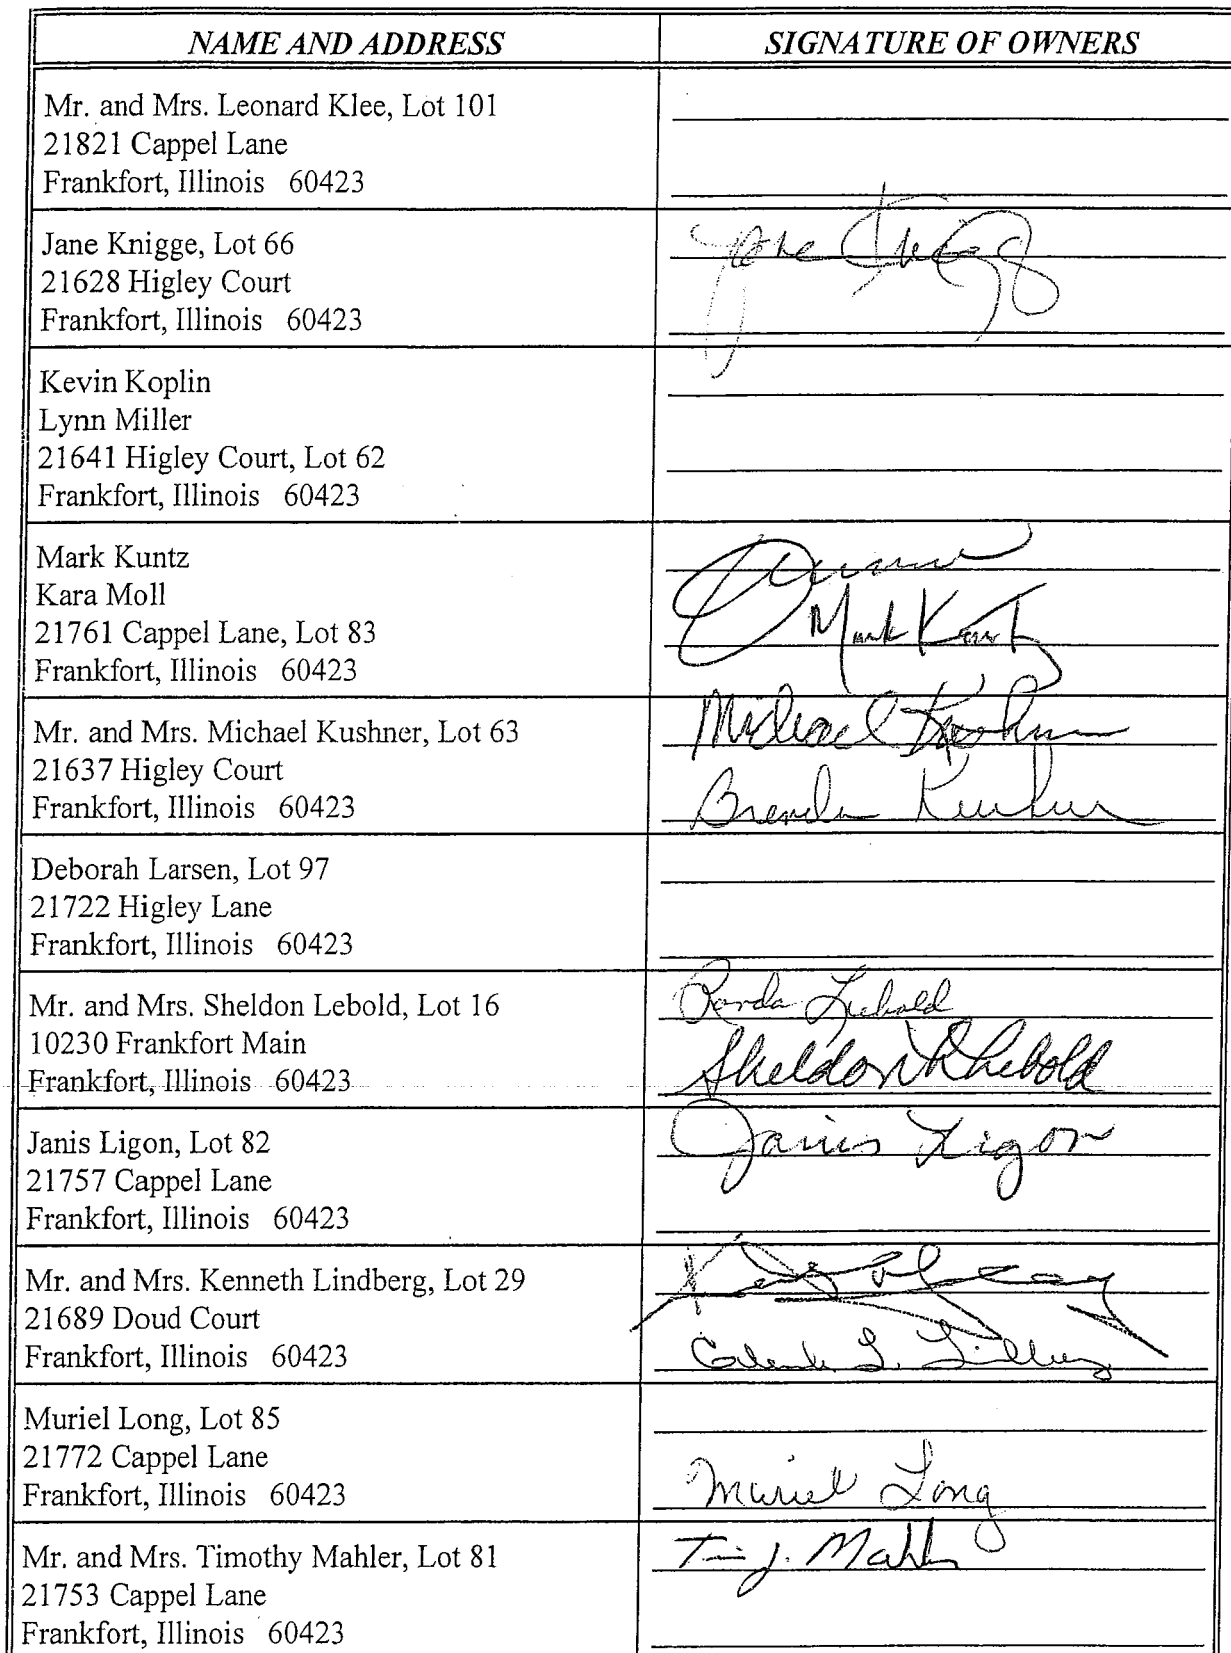 NAME AND ADDRESS
SIGNATURE OF OWNERS
Mr. and Mrs. Leonard Klee, Lot 101
21821 Cappel Lane
Frankfort, Illinois 60423
Jane Knigge, Lot 66
21628 Higley Court
Frankfort, Illinois 60423
Jane Knigge
Kevin Koplin
Lynn Miller
21641 Higley Court, Lot 62
Frankfort, Illinois 60423
Mark Kuntz
Kara Moll
21761 Cappel Lane, Lot 83
Frankfort, Illinois 60423
Mark Kuntz
Mr. and Mrs. Michael Kushner, Lot 63
21637 Higley Court
Frankfort, Illinois 60423
Michael Kushner
Brenda Kushner
Deborah Larsen, Lot 97
21722 Higley Lane
Frankfort, Illinois 60423
Mr. and Mrs. Sheldon Lebold, Lot 16
10230 Frankfort Main
Frankfort, Illinois 60423
Lebold
Sheldon Lebold
Janis Ligon, Lot 82
21757 Cappel Lane
Frankfort, Illinois 60423
Janis Ligon
Mr. and Mrs. Kenneth Lindberg, Lot 29
21689 Doud Court
Frankfort, Illinois 60423
L. Lindberg
Muriel Long, Lot 85
21772 Cappel Lane
Frankfort, Illinois 60423
Muriel Long
Mr. and Mrs. Timothy Mahler, Lot 81
21753 Cappel Lane
Frankfort, Illinois 60423
Tim J. Mahler